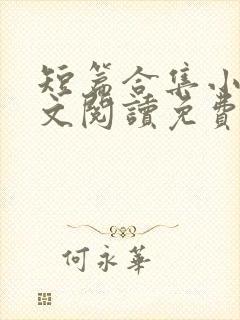 短篇合集小
文閱讀免費
何永華